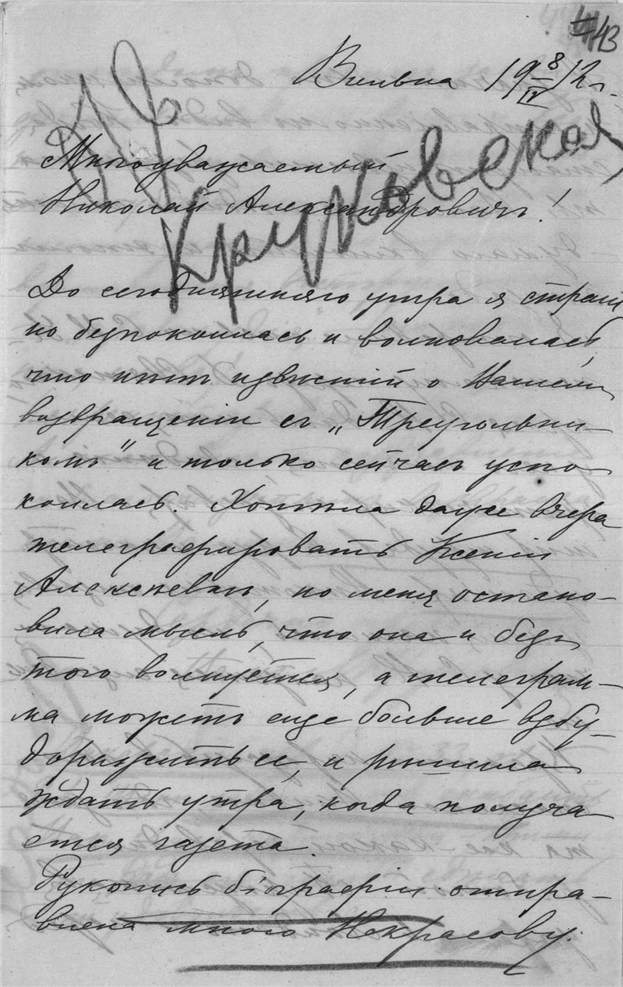 43
Вильна 19 8/IV 12 г.
Крупковская
Многоуважаемый
Николай Александровичъ!
До сегодняшняго утра я страш
но безпокоилась и волновалась,
что нѣтъ извѣстій о Вашемъ
возвращеніи съ „Треугольни-
комъ" и только сейчасъ успо
коилась. Хотѣла даже вчера
телеграфировать Ксеніи
Алексѣевнѣ, но меня остано-
вила мысль, что она и безъ
того волнуется, а телеграм-
ма можетъ еще больше взбу-
доражить ее, и рѣшила
ждать утра, когда получа
ется газета.
Рукопись біографіи отпра-
влена мною Некрасову.